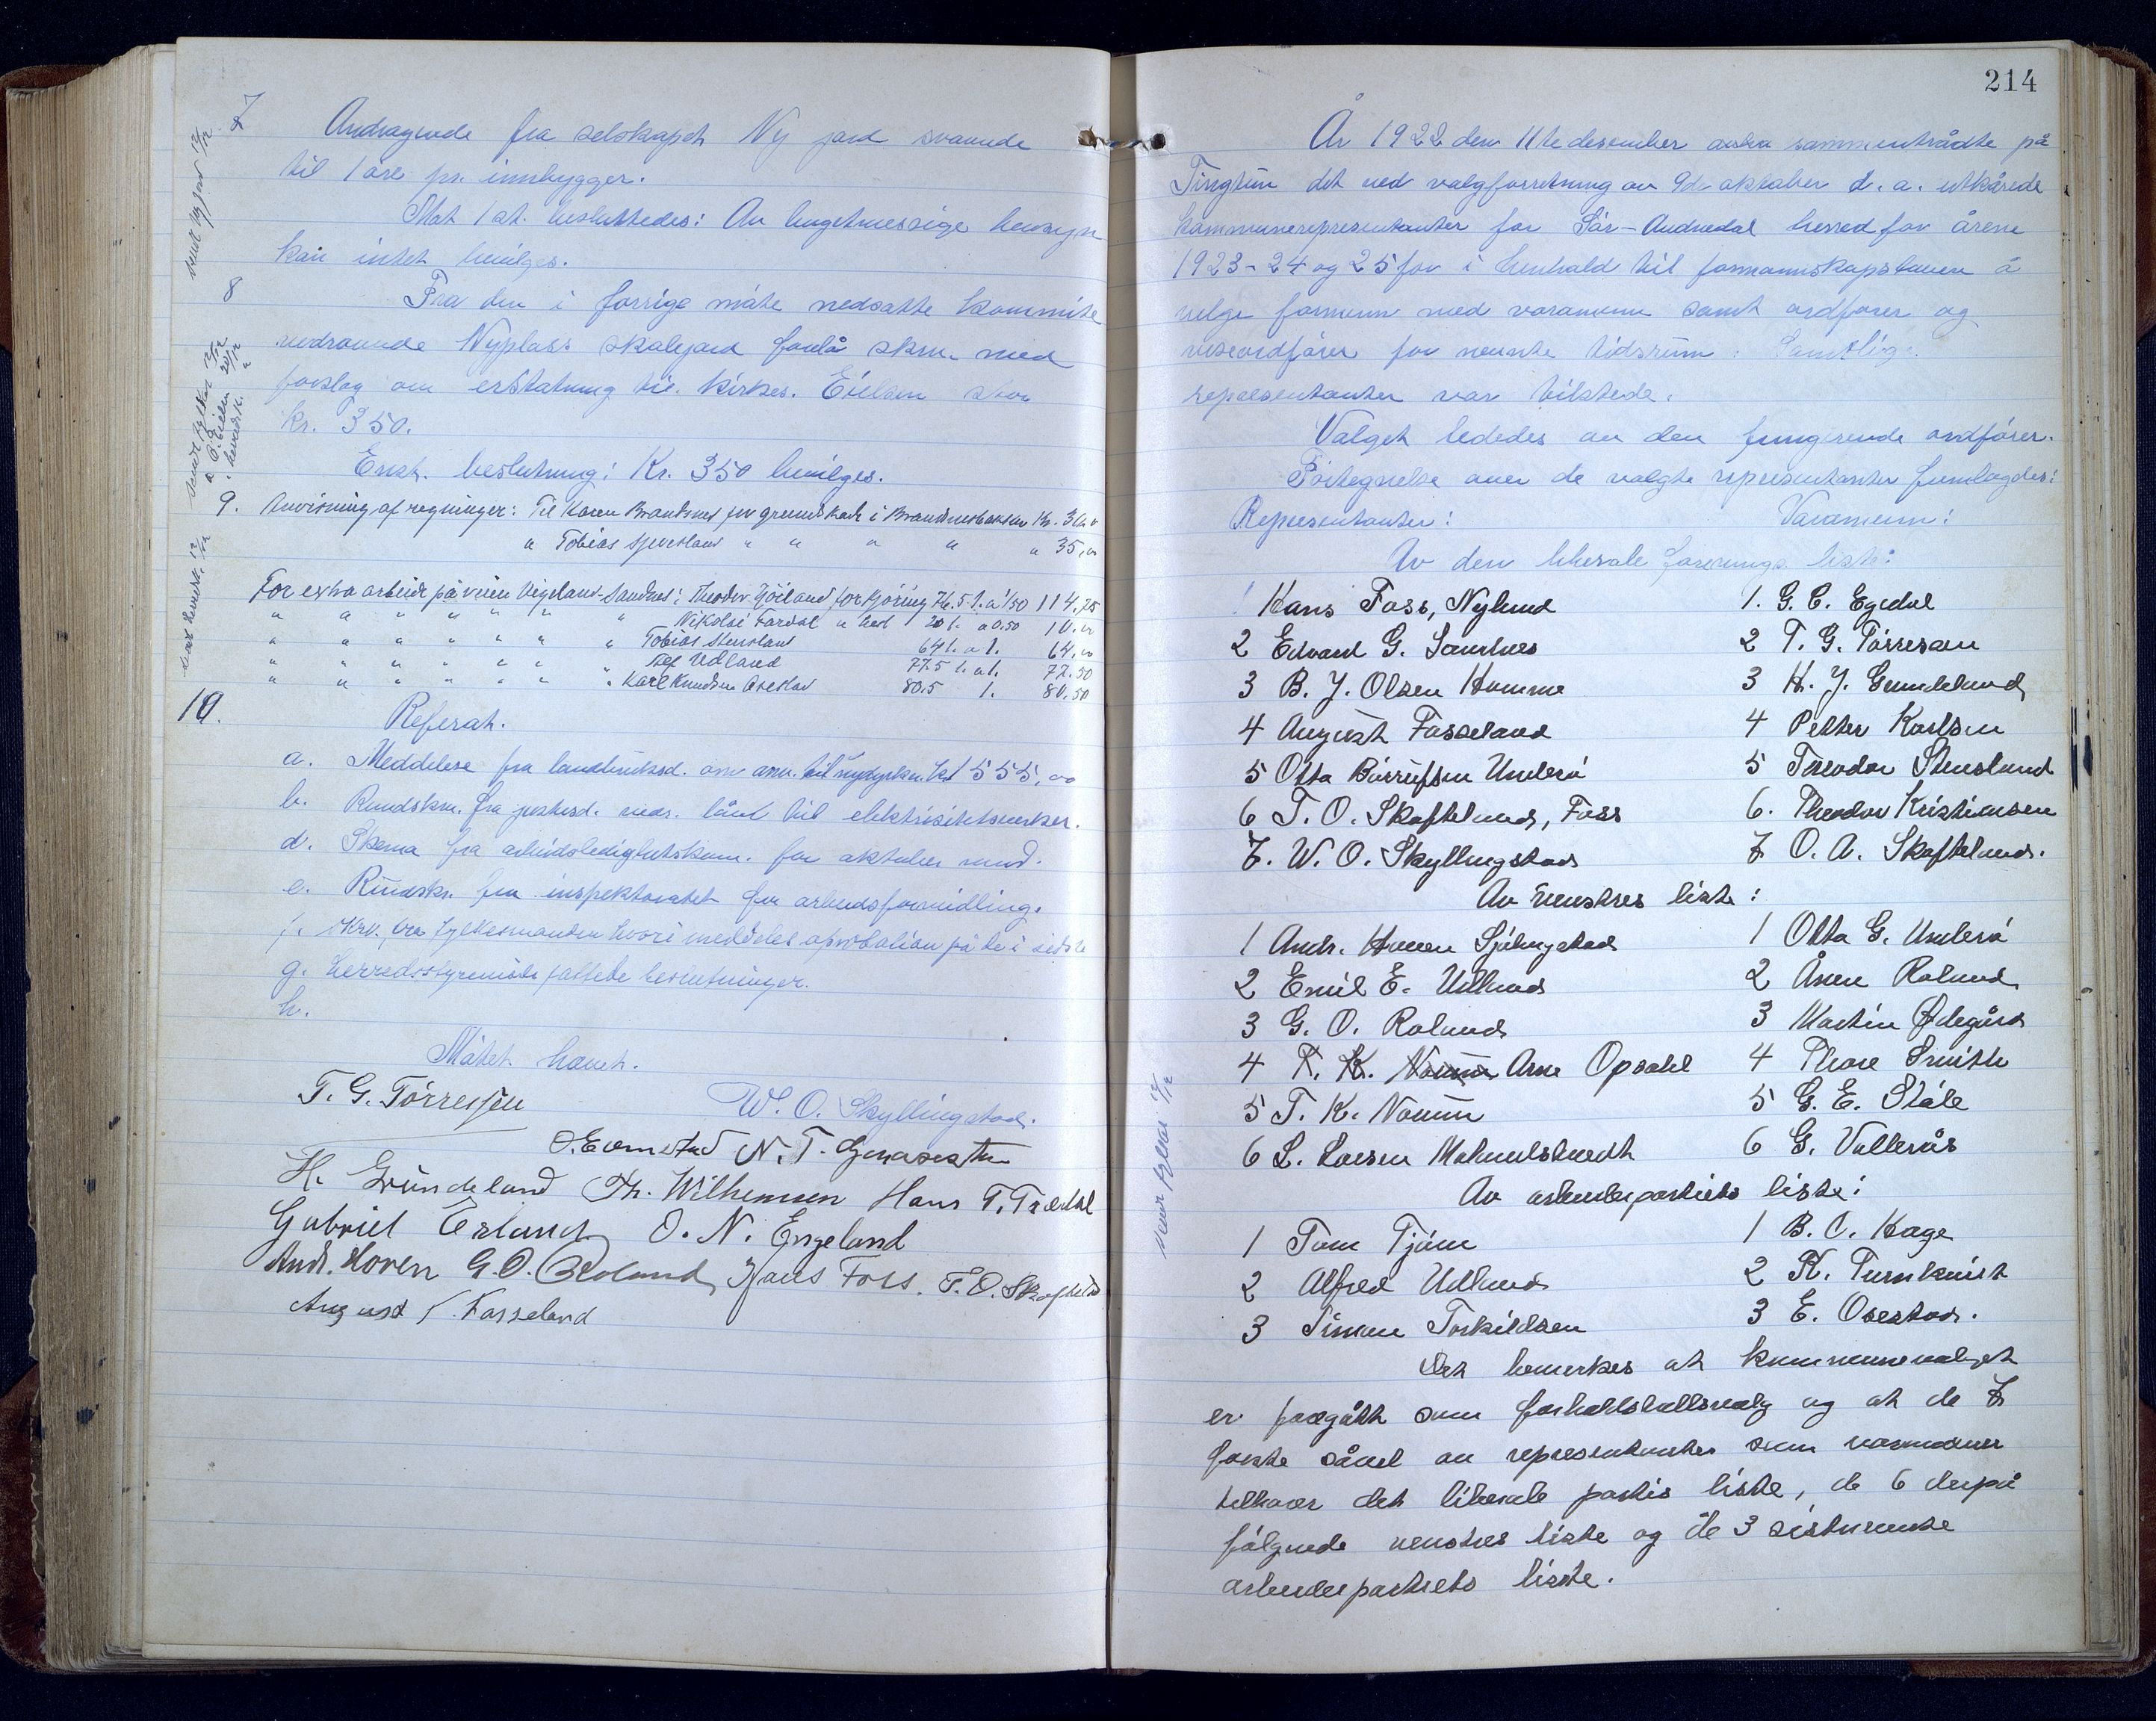 7 Andragende fra selskapet Ny jord svarende
til 1 øre pr. innbygger.
Mot 1 st. besluttedes: Av bugetmessige hensyn
kan intet bevilges.
8 Fra den i forrige møte nedsatte kommite
vedrørende Nyplass skolejord forelå skriv. med
forslag om erstatning til kirkes. Eielsen stor
kr. 350.
Enst. beslutning: Kr. 350 bevilges.
9. Anvisning af regninger: Til Karen Brandsnes for grunnskade i
" Tobias " " " " " 35,
For extra arbeide på veien Vigeland-Sandnes: Theodor kjøring 76.5 t. a 1/50 114,75
" " " " " " " Nikolai Fardal " 20 t. a 0.50 10.
" " " " " " " Tobias Stensland 64 t. a 1. 64,
" " " " " " Udland 77.5 t. a 1. 77.50
" " " " " " " Karl Knudsen Osestad 80.5 1. 80,50
10. Referat.
a. Meddelese fra landbruksd. om anv. til nydyrkn. kr 555,00
b. Rundskr. fra justisd. vedr. lån til elektrisitetsverker.
d. Skema fra arbeidsledighetskom. for oktober mnd.
e. Rundskr. fra inspektoratet for arbeidsformidling.
f. Skr. fra fylkesmanden hvori meddeles aprobation på de i sidste
g. herredsstyremøte fattede beslutninger.
h.
Møtet hævet.
T. G. Tørressen W. O. Skyllingstad.
N. T.
H. Grundeland Th. Wilhemsen Hans T. Trædal
Gabriel Erland O. N. Engeland
Andr. Hoven G. O. Roland Hans Foss. T. O. Skoftelund
August F. Fasseland
214
År 1922 den 11te desember sammentrådte på
Tingtun det ved valgforretning av 9de oktober d. a. utkårede
kommunerepresentanter for Sør-Audnedal herred for årene
1923-24 og 25 for i henhold til formannskapsloven å
velge formenn med varamenn samt ordfører og
viseordfører for nevnte tidsrum. Samtlige
representanter var tilstede.
Valget lededes av den fungerende ordfører.
Fortegnelse over de valgte representanter fremlagdes:
Representanter: Varamenn:
Av den liberale forenings liste:
1 Hans Foss, Nylund 1. G. C. Egedal
2 Edvard G. Sandnes 2 T. G. Tørresen
3 B. J. Olsen Homme 3 H. J. Grundelund
4 August Fasseland 4 Petter Karlsen
5 Otto Børrufsen Underø 5 Teodor Stensland
6 T. O. Skoftelund, Foss 6. Theodor Kristiansen
7. W. O. Skyllingstad 7 O. A. Skoftelund.
Av venstres liste:
1 Andr. Hoven Sjølingstad 1 Otto G. Underø
2 Emil E. Udland 2 Ånen Roland
3 G. O. Roland 3 Martin Ødegård
4 T. K. Arne Opsahl 4 Thore Smith
5 T. K. Noum 5 G. E. Støle
6 L. Larsen 6 G. Vallerås
Av arbeiderpartiets liste:
1 Tom Tjøm 1 B. C. Hage
2 Alfred Udland 2 K. Turnkvist
3 Simon Torkildsen 3 E. Osestad.
Det bemerkes at kommunevalget
er foregått som forholdstallsvalg og at de 7
første såvel av representanter som varamenn
tilhører det liberale partis liste, de 6 derpå
følgende venstres liste og de 3 sistnevnte
arbeiderpartiets liste.